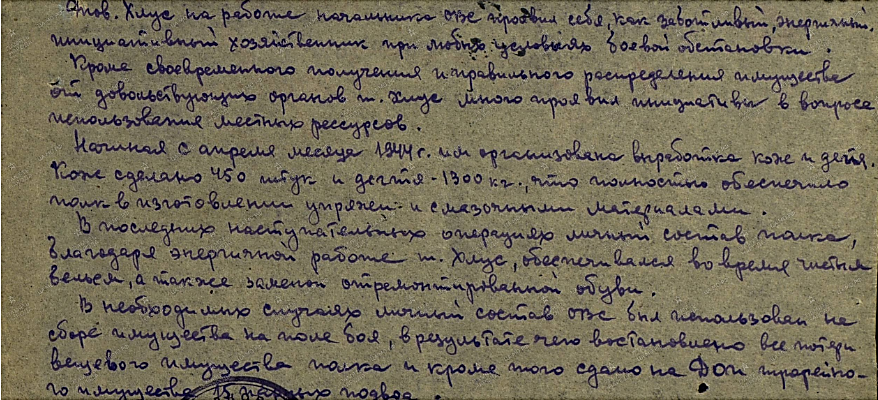 Тов. Хлус на работе начальника ОВС проявил себя, как заботливый, энергичный,
инициативный хозяйственник при любых условиях боевой обстановки.
Кроме своевременного получения и правильного распределения имущества
от довольствующих органов т. Хлус много проявил инициативы в вопросе
использования местных рессурсов.
Начиная с апреля месяца 1944 г. им организована выработка кож и дегтя.
Кож сделано 450 штук и дегтя - 1300 кг., что полностью обеспечило
полк в изготовлении упряжей и смазочными материалами.
В последних наступательных операциях личный состав полка,
благодаря энергичной работе т. Хлус, обеспечивался во время чистым
бельем, а также заменой отремонтированной обуви.
В необходимых случаях личный состав ОВС был использован на
сборе имущества на поле боя, в результате чего востановлено все потери
вещевого имущества полка и кроме того сдано на ДОП трофейно-
го имущества 15 парных подвод.